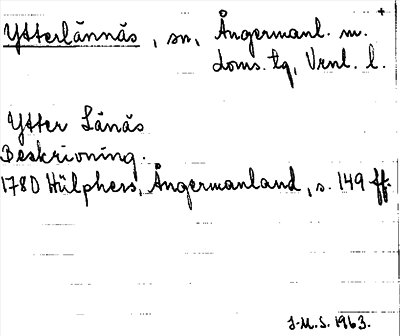 Ytterlännäs, sn, Ångermanl. m.
doms. tg, Vrnl. l.
Ytter Länäs
Beskrivning.
1780 Hülphers, Ångermanland, s. 149 ff.
J.M.S. 1963.